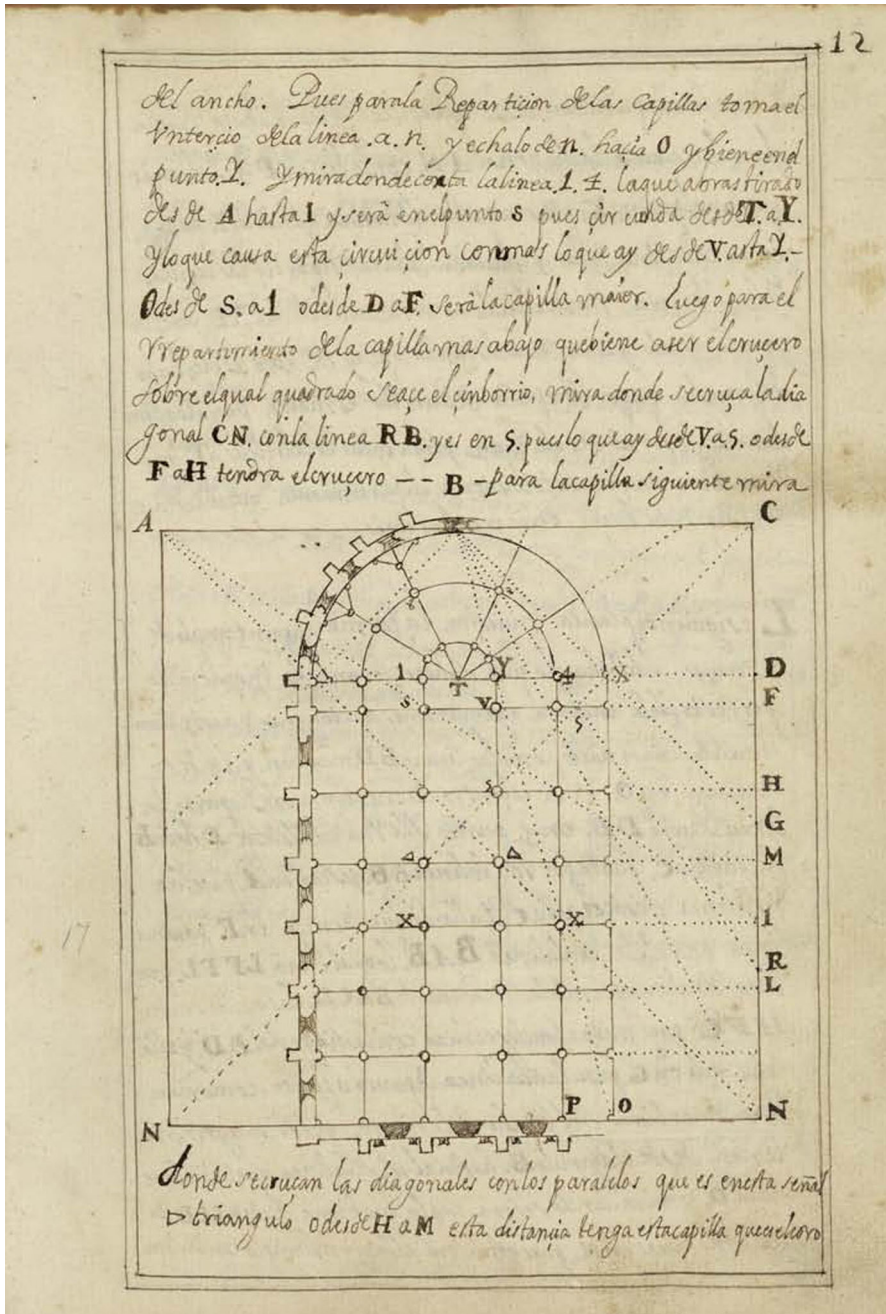 12
del ancho. Pues parala Reparticion delas capillas toma el
Vntercio dela linea .a. n. y echalo de n. hacia O y biene en el
punto .Y. Y mira donde corta la linea .1. 4. la que abras tirado
des de A hasta 1 y serà en el punto s pues circunda desde T. a Y.
y lo que causa esta circuicion con mas lo que ay desde V. asta Y.-
O des de S. a 1 o desde D a F. serà la capilla maior. Luego para el
rrepartimiento de la capilla mas abajo que biene aser el cruçero
sobre el qual quadrado se açe el çinborrio, mira donde se cruça la dia
gonal C N. con la linea R B. y es en S. pues lo que ay desde V. a S. o desde
F a H tendra el cruçero -- B - para la capilla siguiente mira
A C
1 T Y 4 X D
s V S F
s H
G
◁ ▷ M
X X I
R
L
P O
N N
17
donde se cruçan las diagonales con los paralelos que es en esta señal
▷ triangulo o desde H a M esta distançia tenga esta capilla que es el coro